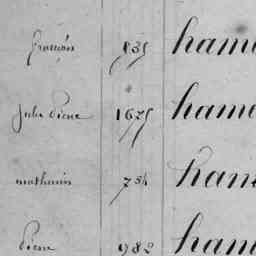 françois 835 hame
Jule Piere 1675 hame
mathurin 754 hame
Piere 982 hame